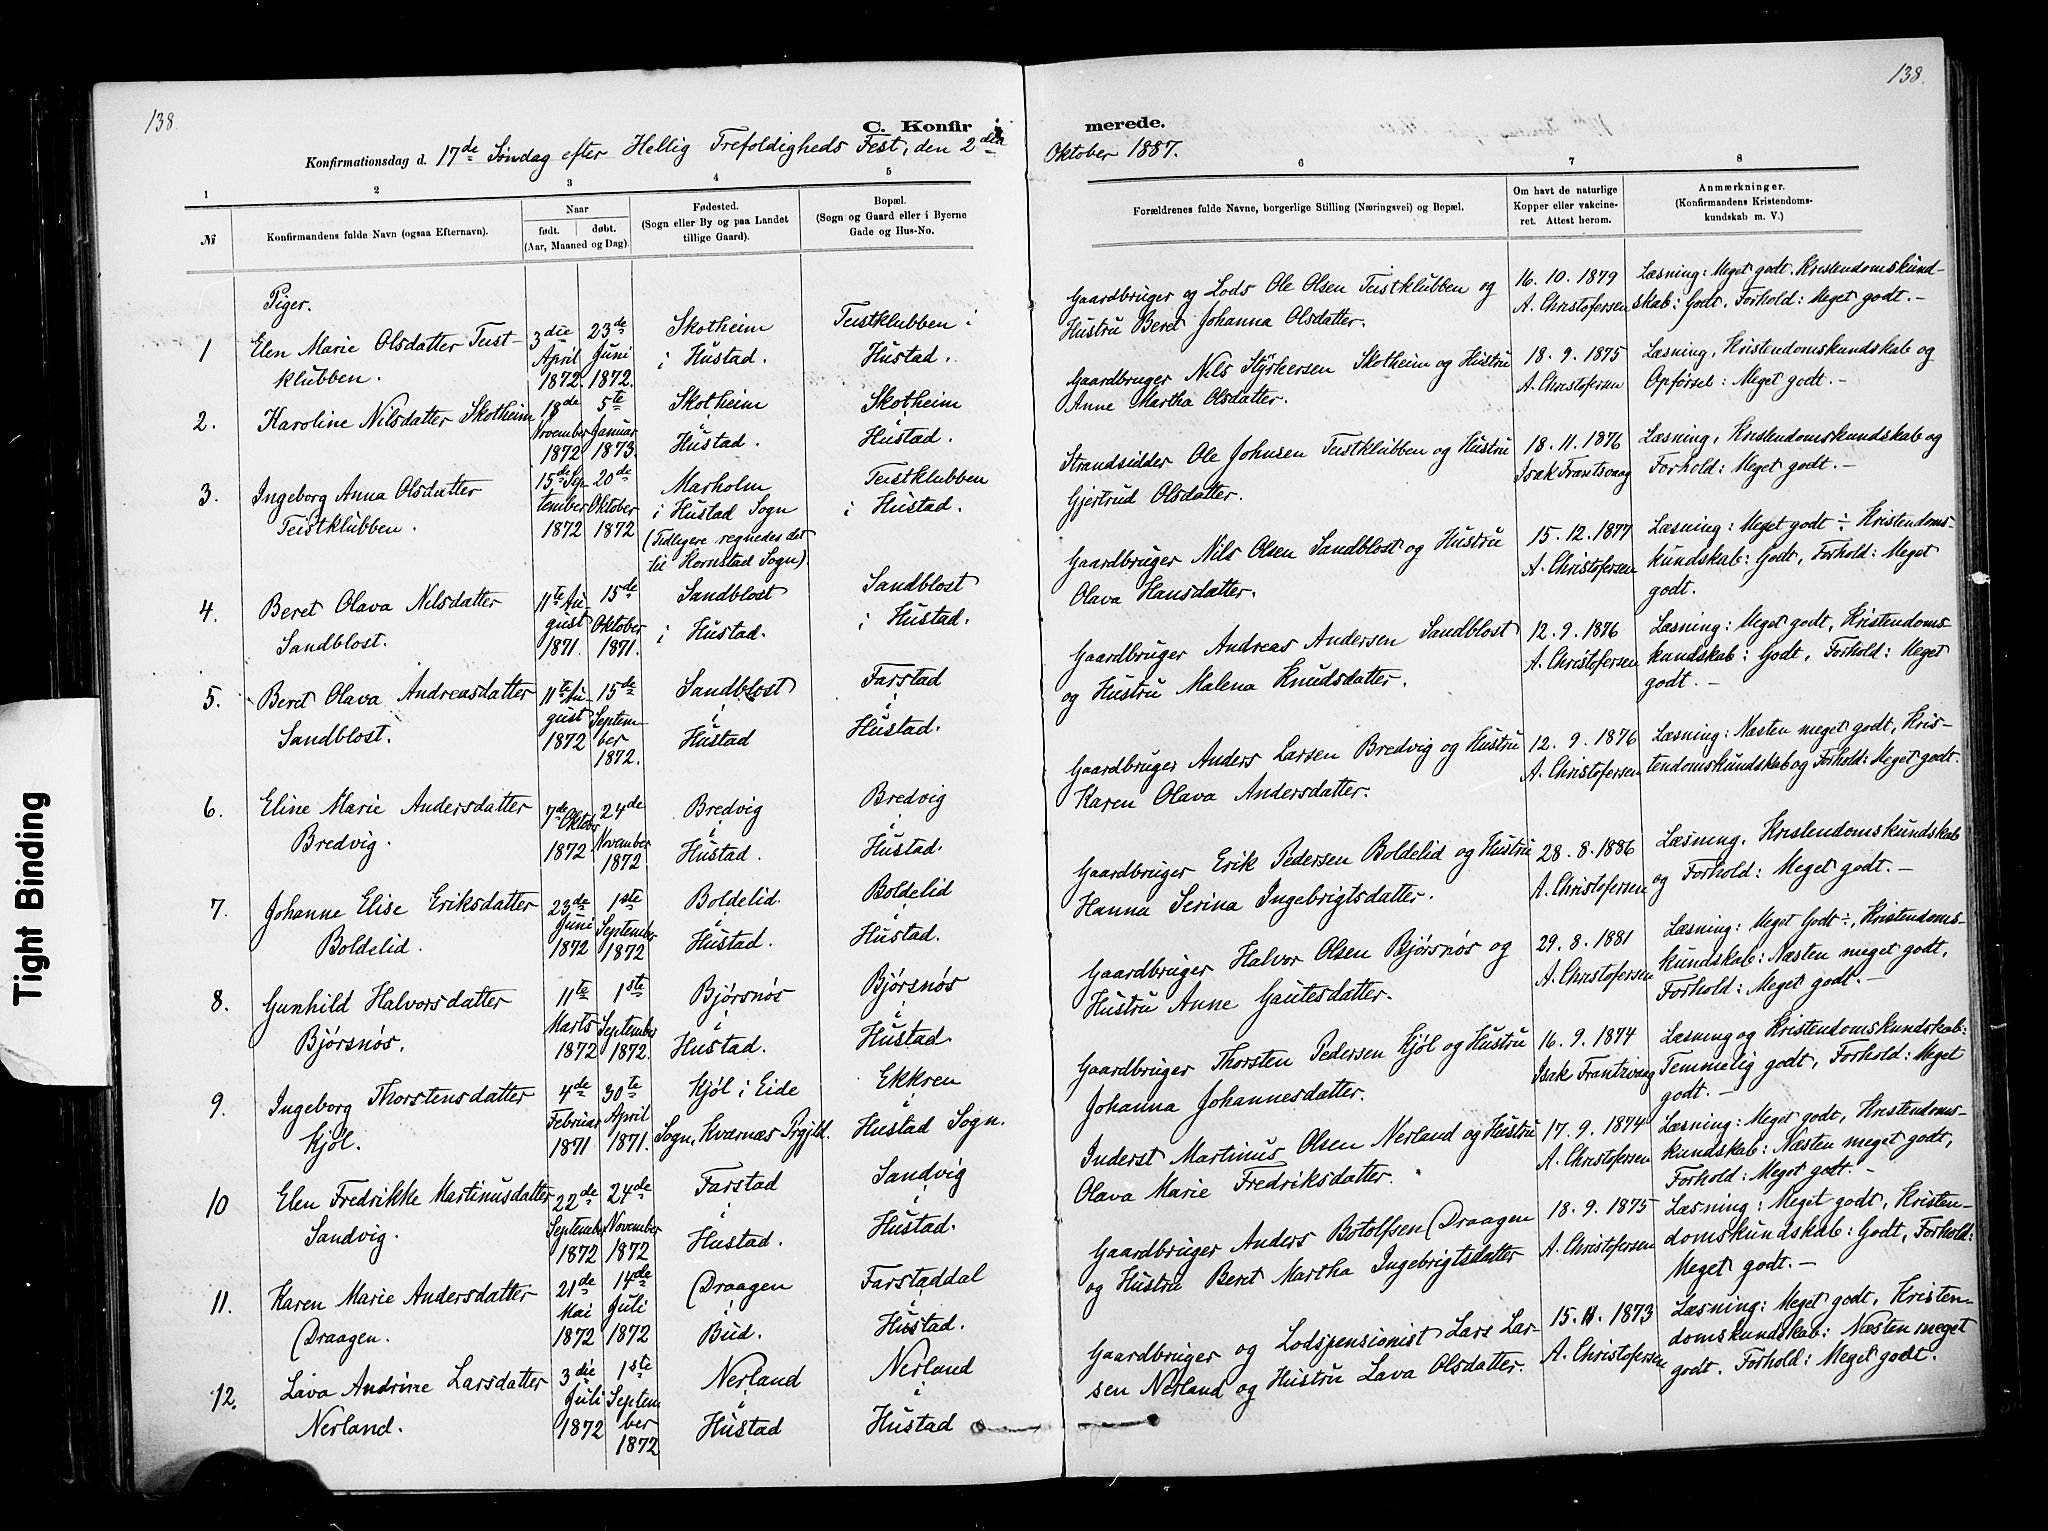 138.
138.
C. Konfirmerede.
Konfirmationsdag d. 17de Søndag efter Hellig Trefoldigheds Fest, den 2den Oktober 1887.
1 2 3 4 5 6 7 8
№
Konfirmandens fulde Navn (ogsaa Efternavn).
Naar
født. døbt.
(Aar, Maaned og Dag).
Fødested.
(Sogn eller By og paa Landet
tillige Gaard).
Bopæl.
(Sogn og Gaard eller i Byerne
Gade og Hus-No.
Forældrenes fulde Navne, borgerlige Stilling (Næringsvei) og Bopæl.
Om havt de naturlige
Kopper eller vakcine-
ret. Attest herom.
Anmærkninger.
(Konfirmandens Kristendoms-
kundskab m. V.)
Piger.
1
Elen Marie Olsdatter Teist-
klubben.
3die
April
1872.
23de
Juni
1872.
Skotheim
i Hustad.
Teistklubben i
Hustad.
Gaardbruger og Lods Ole Olsen Teistklubben og
Hustru Beret Johanna Olsdatter.
16. 10. 1879
A. Christofersen
Læsning: Meget godt. Kristendomskund-
skab: Godt, Forhold: Meget godt. -
2.
Karoline Nilsdatter Skotheim
18de
November
1872
5te
Januar
1873.
Skotheim
i
Hustad.
Skotheim
i
Hustad.
Gaardbruger Nils Styrkersen Skotheim og Hustru
Anne Martha Olsdatter.
18. 9. 1875
A. Christofersen
Læsning, Kristendomskundskab og
Opførsel: Meget godt. -
3.
Ingeborg Anna Olsdatter
Teistklubben.
15de Sep-
tember
1872
20de
Oktober
1872
Marholm
i Hustad Sogn
(Tidligere regnedes det
til Kornstad Sogn).
Teistklubben
i Hustad.
Strandsidder Ole Johnsen Teistklubben og Hustru
Gjertrud Olsdatter.
18. 11. 1876
Isak Frantsvaag
Læsning, Kristendomskundskab og
Forhold: Meget godt. -
4.
Beret Olava Nilsdatter
Sandblost.
11te Au-
gust
1871.
15de
Oktober
1871.
Sandblost
i Hustad.
Sandblost
i Hustad.
Gaardbruger Nils Olsen Sandblost og Hustru
Olava Hansdatter.
15. 12. 1877
A. Christofersen
Læsning: Meget godt ÷ Kristendoms-
kundskab: Godt, Forhold: Meget
godt.
5.
Beret Olava Andreasdatter
Sandblost.
11te Au-
gust
1872
15de
Septem-
ber
1872.
Sandblost
i
Hustad
Farstad
i
Hustad.
Gaardbruger Andreas Andersen Sandblost
og Hustru Malena Knudsdatter.
12. 9. 1876
A. Christofersen
Læsning: Meget godt, Kristendoms-
kundskab: Godt, Forhold: Meget
godt. -
6.
Eline Marie Andersdatter
Bredvig.
7de Oktober
1872
24de
November
1872
Bredvig
i
Hustad.
Bredvig
i
Hustad.
Gaardbruger Anders Larsen Bredvig og Hustru
Karen Olava Andersdatter.
12. 9. 1876
A. Christofersen
Læsning: Næsten meget godt, Kris-
tendomskundskab og Forhold: Meget godt.
7.
Johanne Elise Eriksdatter
Boldelid.
23de
Juni
1872
1ste
September
1872
Boldelid.
i
Hustad.
Boldelid
i
Hustad.
Gaardbruger Erik Pedersen Boldelid og Hustru
Hanna Serina Ingebrigtsdatter.
28. 8. 1886
A. Christofersen
Læsning, Kristendomskundskab
og Forhold: Meget godt. -
8.
Gunhild Halvorsdatter
Bjørsnøs.
11te
Marts
1872
1ste
September
1872.
Bjørsnøs
i
Hustad.
Bjørsnøs
i
Hustad.
Gaardbruger Halvor Olsen Bjørsnøs og
Hustru Anne Gautesdatter.
29. 8. 1881
A. Christofersen
Læsning: Meget Godt ÷, Kristendoms-
kundskab: Næsten meget godt,
Forhold: Meget godt. -
9.
Ingeborg Thorstensdatter
Kjøl.
4de
Februar
1871
30te
April
1871.
Kjøl i Eide
Sogn, Kværnæs Prgjld.
Ekkren
i
Hustad Sogn.
Gaardbruger Thorsten Pedersen Kjøl og Hustru
Johanna Johannesdatter.
16. 9. 1874
Isak Frantzvaag
Læsning og Kristendomskundskab:
Temmelig godt, Forhold: Meget
godt. -
10
Elen Fredrikke Martinusdatter
Sandvig.
22de
September
1872
24de
November
1872
Farstad
i
Hustad.
Sandvig
i
Hustad.
Inderst Martinus Olsen Nerland og Hustru
Olava Marie Fredriksdatter.
17. 9. 1874
A. Christofersen
Læsning: Meget godt, Kristendoms-
kundskab: Næsten meget godt,
Forhold: Meget godt. -
11.
Karen Marie Andersdatter
Draagen.
21de
Mai
1872
14de
Juli
1872
Draagen
i
Bud.
Farstaddal
i
Hustad.
Gaardbruger Anders Botolfsen Draagen
og Hustru Beret Martha Ingebrigtsdatter
18. 9. 1875
A. Christofersen
Læsning: Meget godt, Kristen-
domskundskab: Godt, Forhold:
Meget godt. -
12.
Lava Andrine Larsdatter
Nerland.
3die
Juli
1872
1ste
Septem-
ber
1872
Nerland
i
Hustad
Nerland
i
Hustad
Gaardbruger og Lodspensionist Lars Lar-
sen Nerland og Hustru Lava Olsdatter.
15. 11. 1873
A. Christofersen
Læsning: Meget godt, Kristen-
domskundskab: Næsten meget
godt. Forhold: Meget godt.
Tight Binding